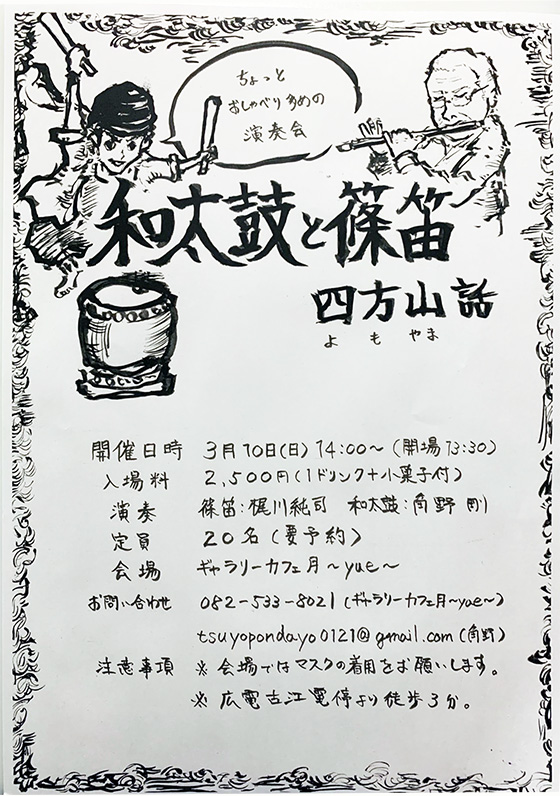 ちょっと
おしゃべり多めの
演奏会
和太鼓と篠笛
四方山話
よもやま
開催日時 3月10日(日) 14:00〜 (開場13:30)
入場料 2,500円(1ドリンク+小菓子付)
演奏 篠笛:梶川純司 和太鼓:角野 剛
定員 20名(要予約)
会場 ギャラリーカフェ月〜yue〜
お問い合わせ 082-533-8021(ギャラリーカフェ月〜yue〜)
tsuyopondayo0121@gmail.com(角野)
注意事項 ※会場ではマスクの着用をお願いします。
※広電古江電停より徒歩3分。